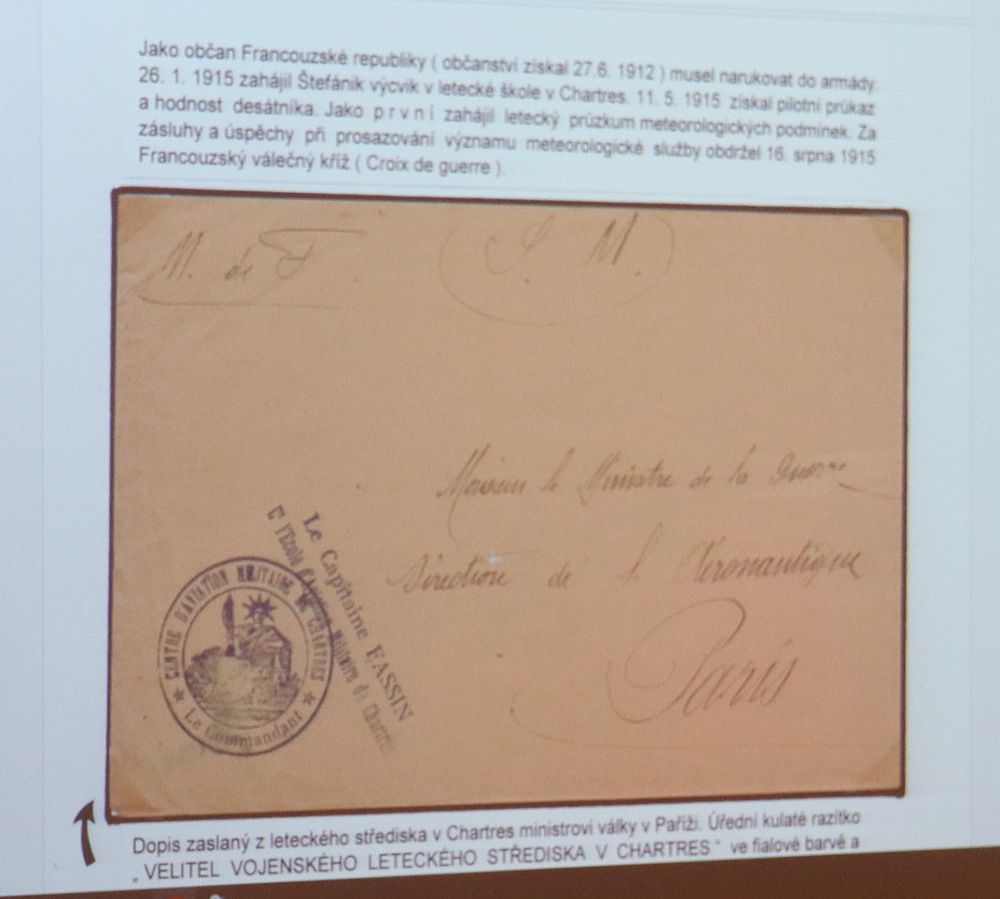 Jako občan Francouzské republiky ( občanství získal 27.6. 1912 ) musel narukovat do armády.
26. 1. 1915 zahájil Štefánik výcvik v letecké škole v Chartres. 11. 5. 1915 získal pilotní průkaz
a hodnost desátníka. Jako p r v n í zahájil letecký průzkum meteorologických podmínek. Za
zásluhy a úspěchy při prosazování významu meteorologické služby obdržel 16. srpna 1915
Francouzský válečný kříž ( Croix de guerre ).
M. de F
S. M.
Monsieur le Ministre de la Guerre
Direction de l'Aéronautique
Paris
Le Capitaine FASSIN
Ct l'Ecole d'Aviation Militaire de Chartres
CENTRE D'AVIATION MILITAIRE DE CHARTRES
★ Le Commandant ★
Dopis zaslaný z leteckého střediska v Chartres ministrovi války v Paříži. Úřední kulaté razítko
„ VELITEL VOJENSKÉHO LETECKÉHO STŘEDISKA V CHARTRES " ve fialové barvě a